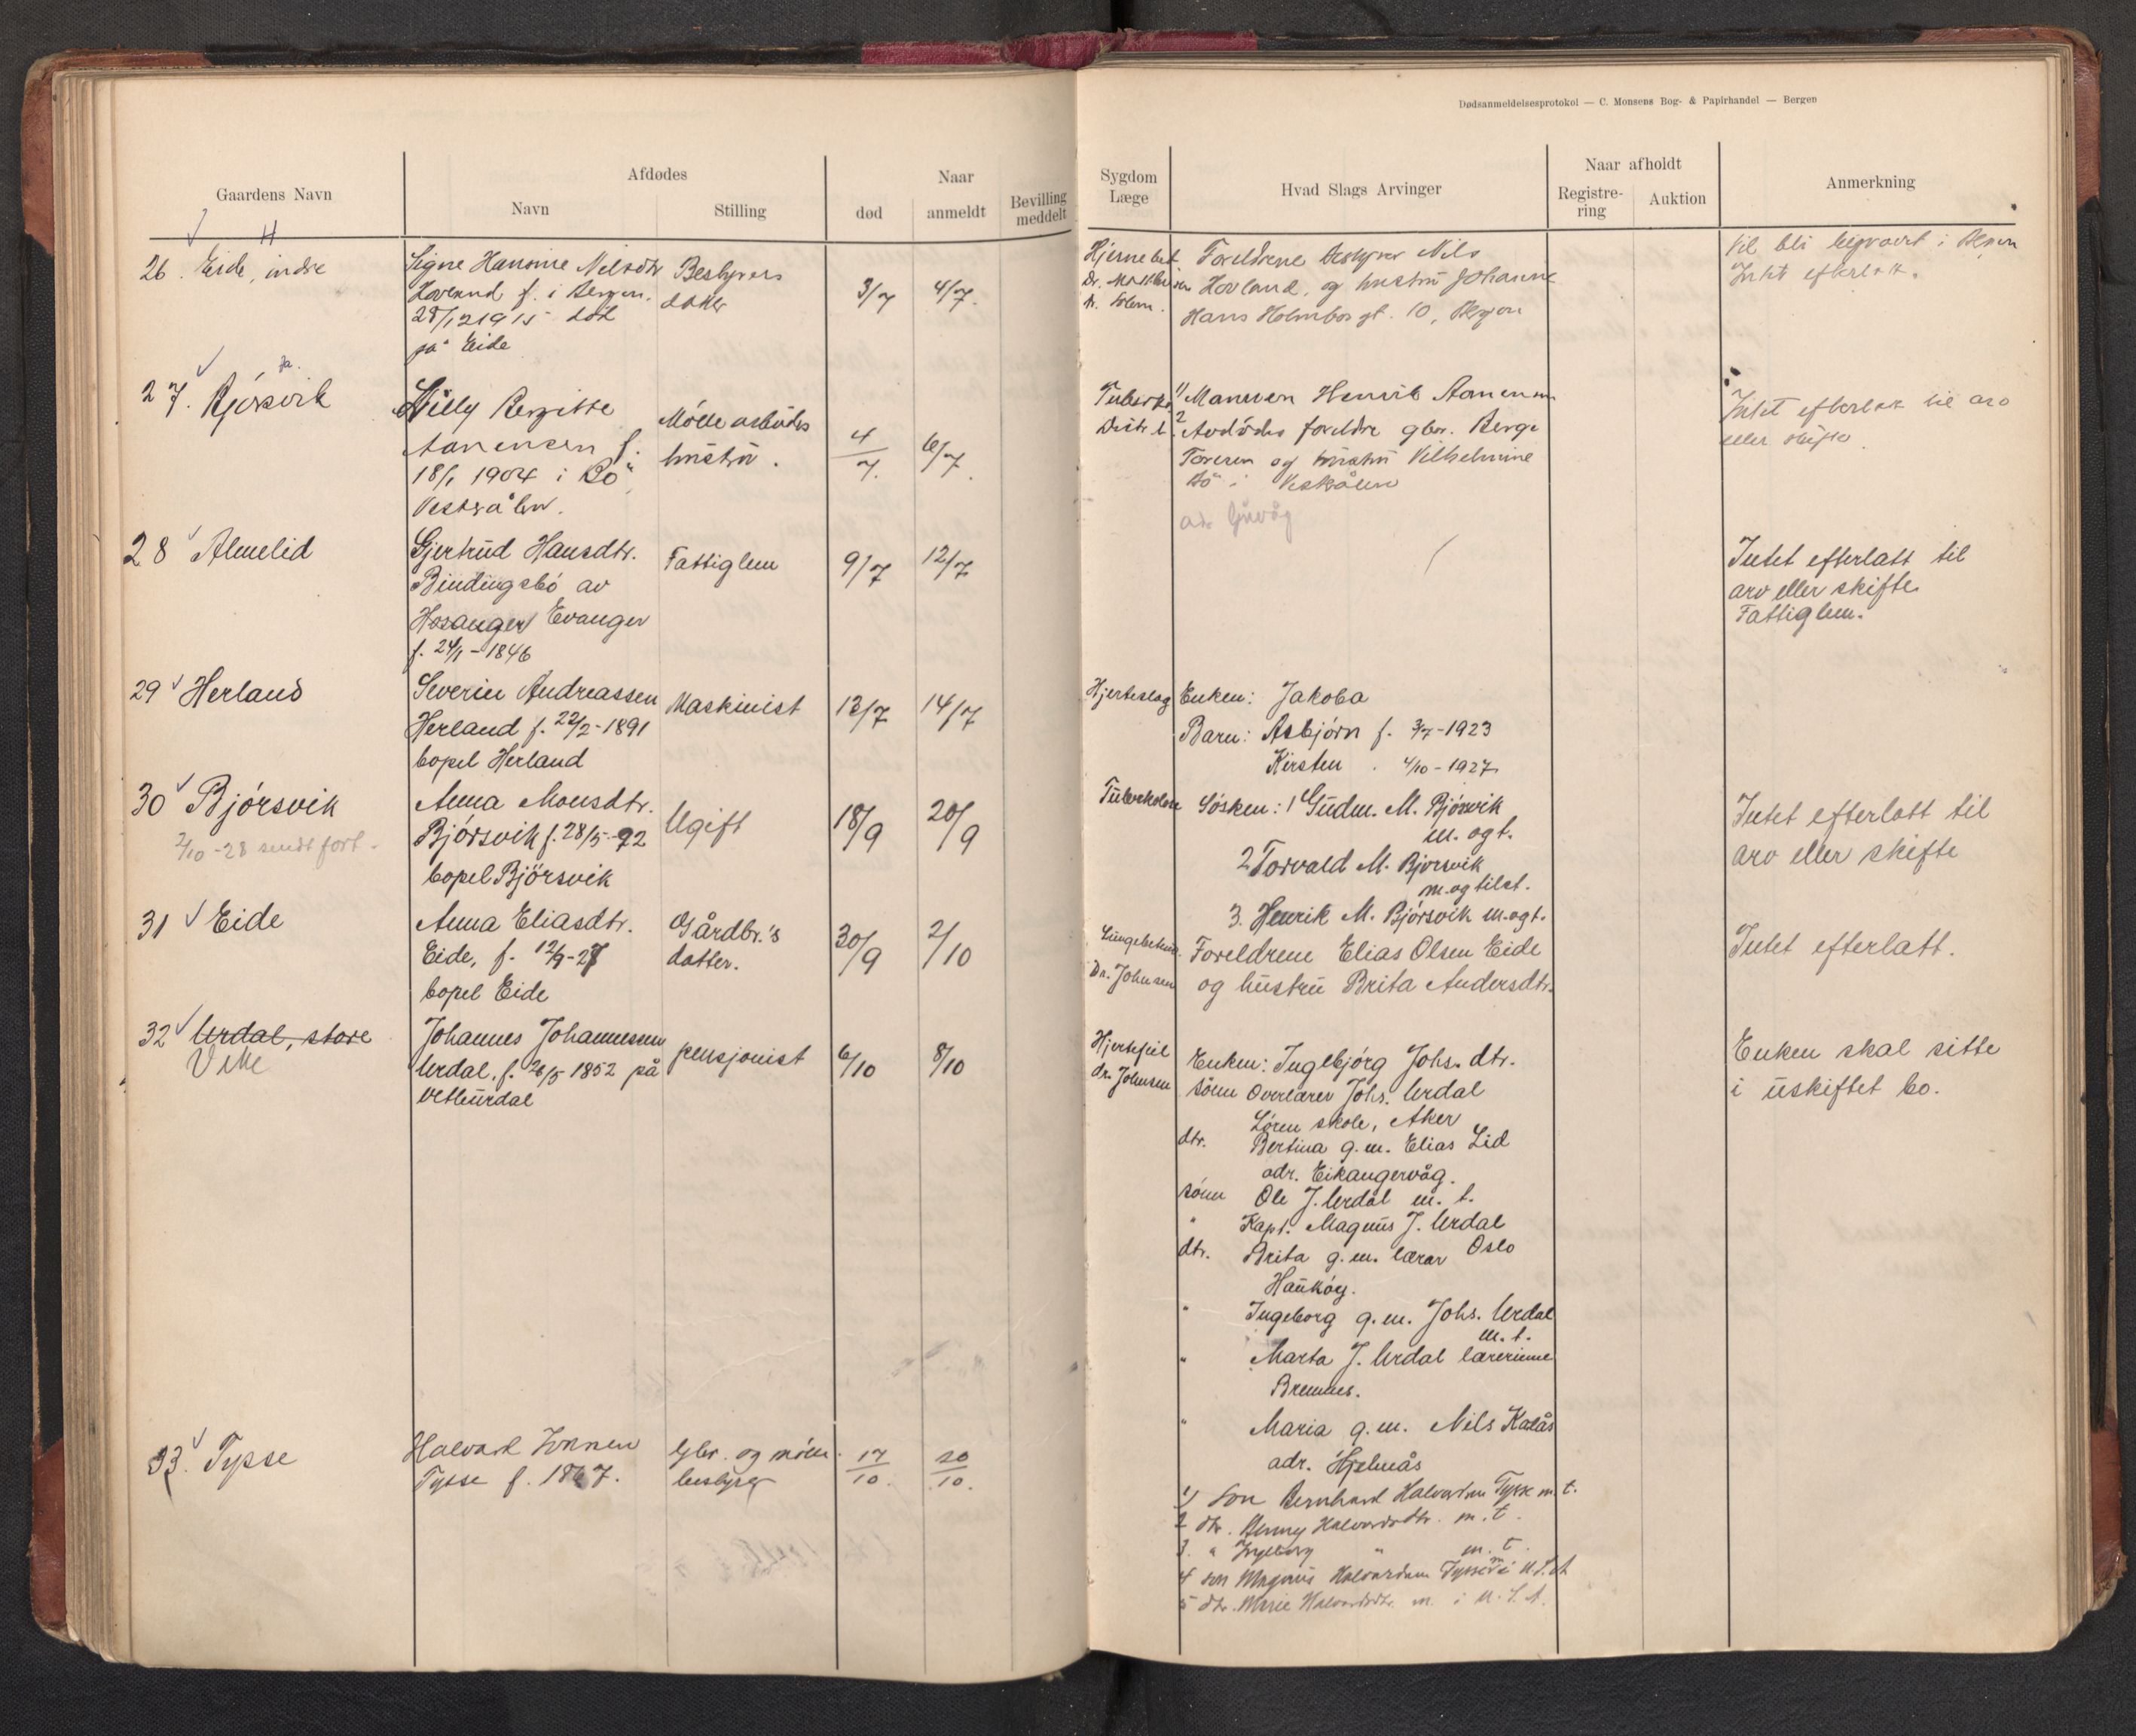 Dødsanmeldelsesprotokol — C. Monsens Bog- & Papirhandel — Bergen
Gaardens Navn
Afdødes
Navn
Stilling
Naar
død
anmeldt
Bevilling
meddelt
Sygdom
Læge
Hvad Slags Arvinger
Naar afholdt
Registre-
ring
Auktion
Anmerkning
26. Eide, indre
Signe Hanine Nilsdtr
Hovland f. i Bergen.
28/12 1915 död
på Eide
Bestyrers
datter
3/7
4/7
Hjernebet
Dr.
Foreldrene Bestyrer Nils
Hovland, og hustru Johanne
Hans Holmbos gt. 10, Bergen
Vil bli begravet i Bergen
Intet efterlatt.
27. Bjørsvik
Willy Bergitte
Aanensen f.
18/1 1904 i Bö
Vestrålen.
Mölle arbeiders
hustru.
4/7.
6/7.
Distr. l.
1/ Mannen Henrik Aanensen
2 Avdödes foreldre gbr. Berge
Toresen og hustru Vilhelmine
Bö i Vestrålen
adr
Intet efterlatt til arv
eller skifte.
28 Almelid
Gjertrud Hansdtr.
Bindingsbö av
Hosanger Evanger
f. 24/1 - 1846
Fattiglem
9/7
12/7
Intet efterlatt til
arv eller skifte.
Fattiglem.
29 Herland
Severin Andreassen
Herland f. 22/2 - 1891
bopel Herland
Maskinist
13/7
14/7
Hjerteslag
Enken: Jakoba
Barn: Asbjörn f. 3/7 - 1923
Kirsten . 4/10 - 1927
30 Bjórsvik
2/10 - 28 sendt fort.
Anna Monsdtr.
Bjórsvik f. 28/5 - 92
bopel Bjórsvik
Ugift
18/9
20/9
Tuberkulose
Sósken: 1 Gudm. M. Bjórsvik
m. og t.
2 Torvald M. Bjorsvik
m. og tilst.
3. Henrik M. Bjórsvik m. og t.
Intet efterlatt til
arv eller skifte
31 Eide
Anna Eliasdtr.
Eide, f. 12/9 - 27
bopel Eide
Gårdbr.'s
datter.
30/9
2/10
Dr. Johnsen
Foreldrene Elias Olsen Eide
og hustru Brita Andersdtr.
Intet efterlatt.
32 Urdal, store
Vetle
Johannes Johannessen
Urdal. f. 26/5 1852 på
Vetleurdal
pensjonist
6/10
8/10
Hjertefeil
dr. Johnsen
Enken: Ingebjórg Johs. dtr.
sónn Overlærer Johs. Urdal
Lóren skole, Aker
dtr. Bertina g. m. Elias Lid
adr. Eikangervåg.
sónn Ole J. Urdal m. t.
" Kapt. Magnus J. Urdal
Oslo
dtr. Brita g. m. lærar
Haukóy.
" Ingeborg g. m. Johs. Urdal
m. t.
" Marta J. Urdal lærerinne
Bremnes.
" Maria g. m. Nils Kalås
adr. Hjelmås
Enken skal sitte
i uskiftet bo.
33. Tysse
Halvard
Tysse f. 1867.
Gbr. og mölle
bestyrer
17/10.
20/10.
1) Sön Bernhard Halvardsen Tysse m. t.
2 dtr. Halvardsdtr. m. t.
3. " Ingeborg " m. t.
4 sön Magnus Halvardsen Tysse m i U.S.A
5 dtr. Marie Halvardsdtr. m. i U.S.A.